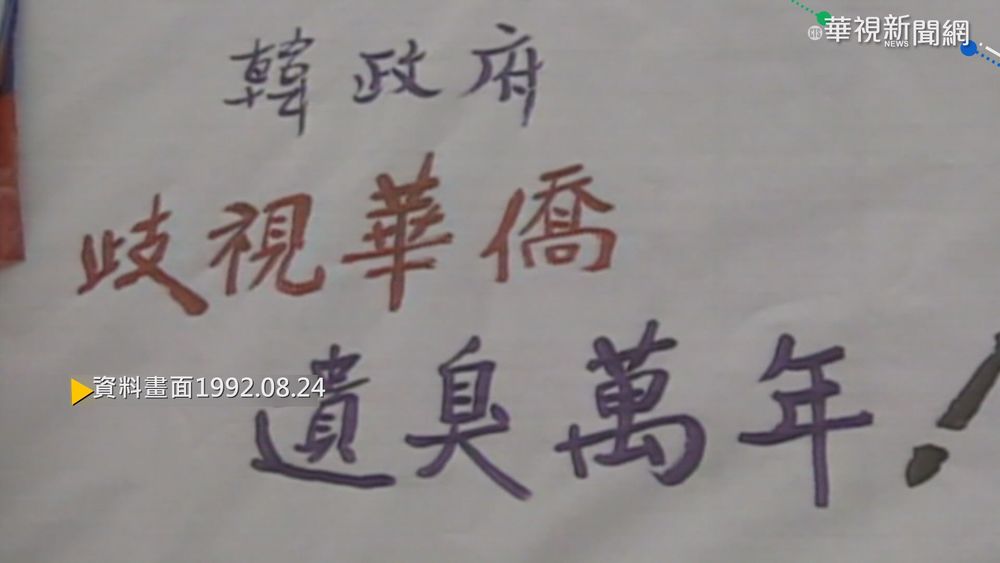 華視新聞網
NEWS
韓政府
歧視華僑
資料畫面1992.08.24
遺臭萬年！